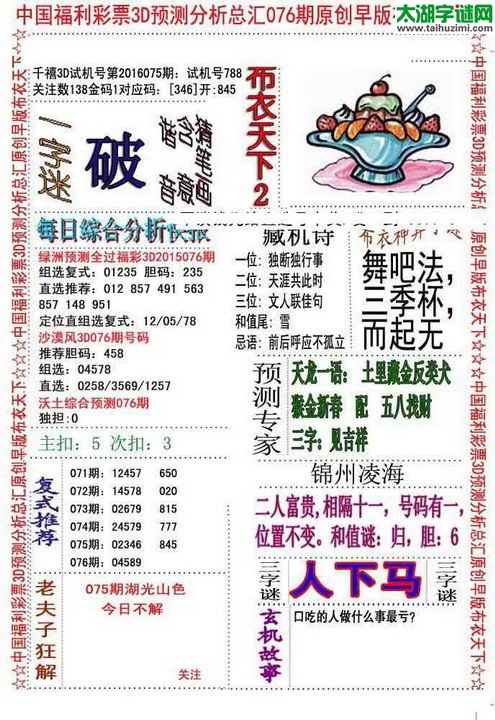 中国福利彩票3D预测分析总汇076期原创早版布
太湖字谜网
www.taihuzimi.com
☆中国福利彩票3D预测分析总汇原创早版布衣天下☆☆
千禧3D试机号第2016075期: 试机号788
关注数138金码1对应码: [346]开:845
一字迷
破
猜笔画
含意
谐音
布衣天下2
每日综合分析快报
绿洲预测全过福彩3D2015076期
组选复式: 01235 胆码: 235
直选推荐: 012 857 491 563
857 148 951
定位直组选复式: 12/05/78
沙漠风3D076期号码
推荐胆码: 458
组选: 04578
直选: 0258/3569/1257
沃土综合预测076期
独担: 0
主扣: 5 次扣: 3
藏机诗
一位: 独断独行事
二位: 天涯共此时
三位: 文人联佳句
和值尾: 雪
忌语: 前后呼应不孤立
舞吧法,
三季杯,
而起无
预测专家
天龙一语: 土里藏金反类犬
猴金新春 配 五八找财
三字: 见吉祥
复式推荐
071期: 12457 650
072期: 14578 020
073期: 02679 815
074期: 24579 777
075期: 02346 845
076期: 04589
锦州凌海
二人富贵,相隔十一,号码有一,
位置不变。和值谜: 归, 胆: 6
三字谜
人下马
三字谜
老夫子狂解
075期湖光山色
今日不解
关注
玄机故事
口吃的人做什么事最亏?
☆中国福利彩票3D预测分析总汇原创早版布衣天下☆☆